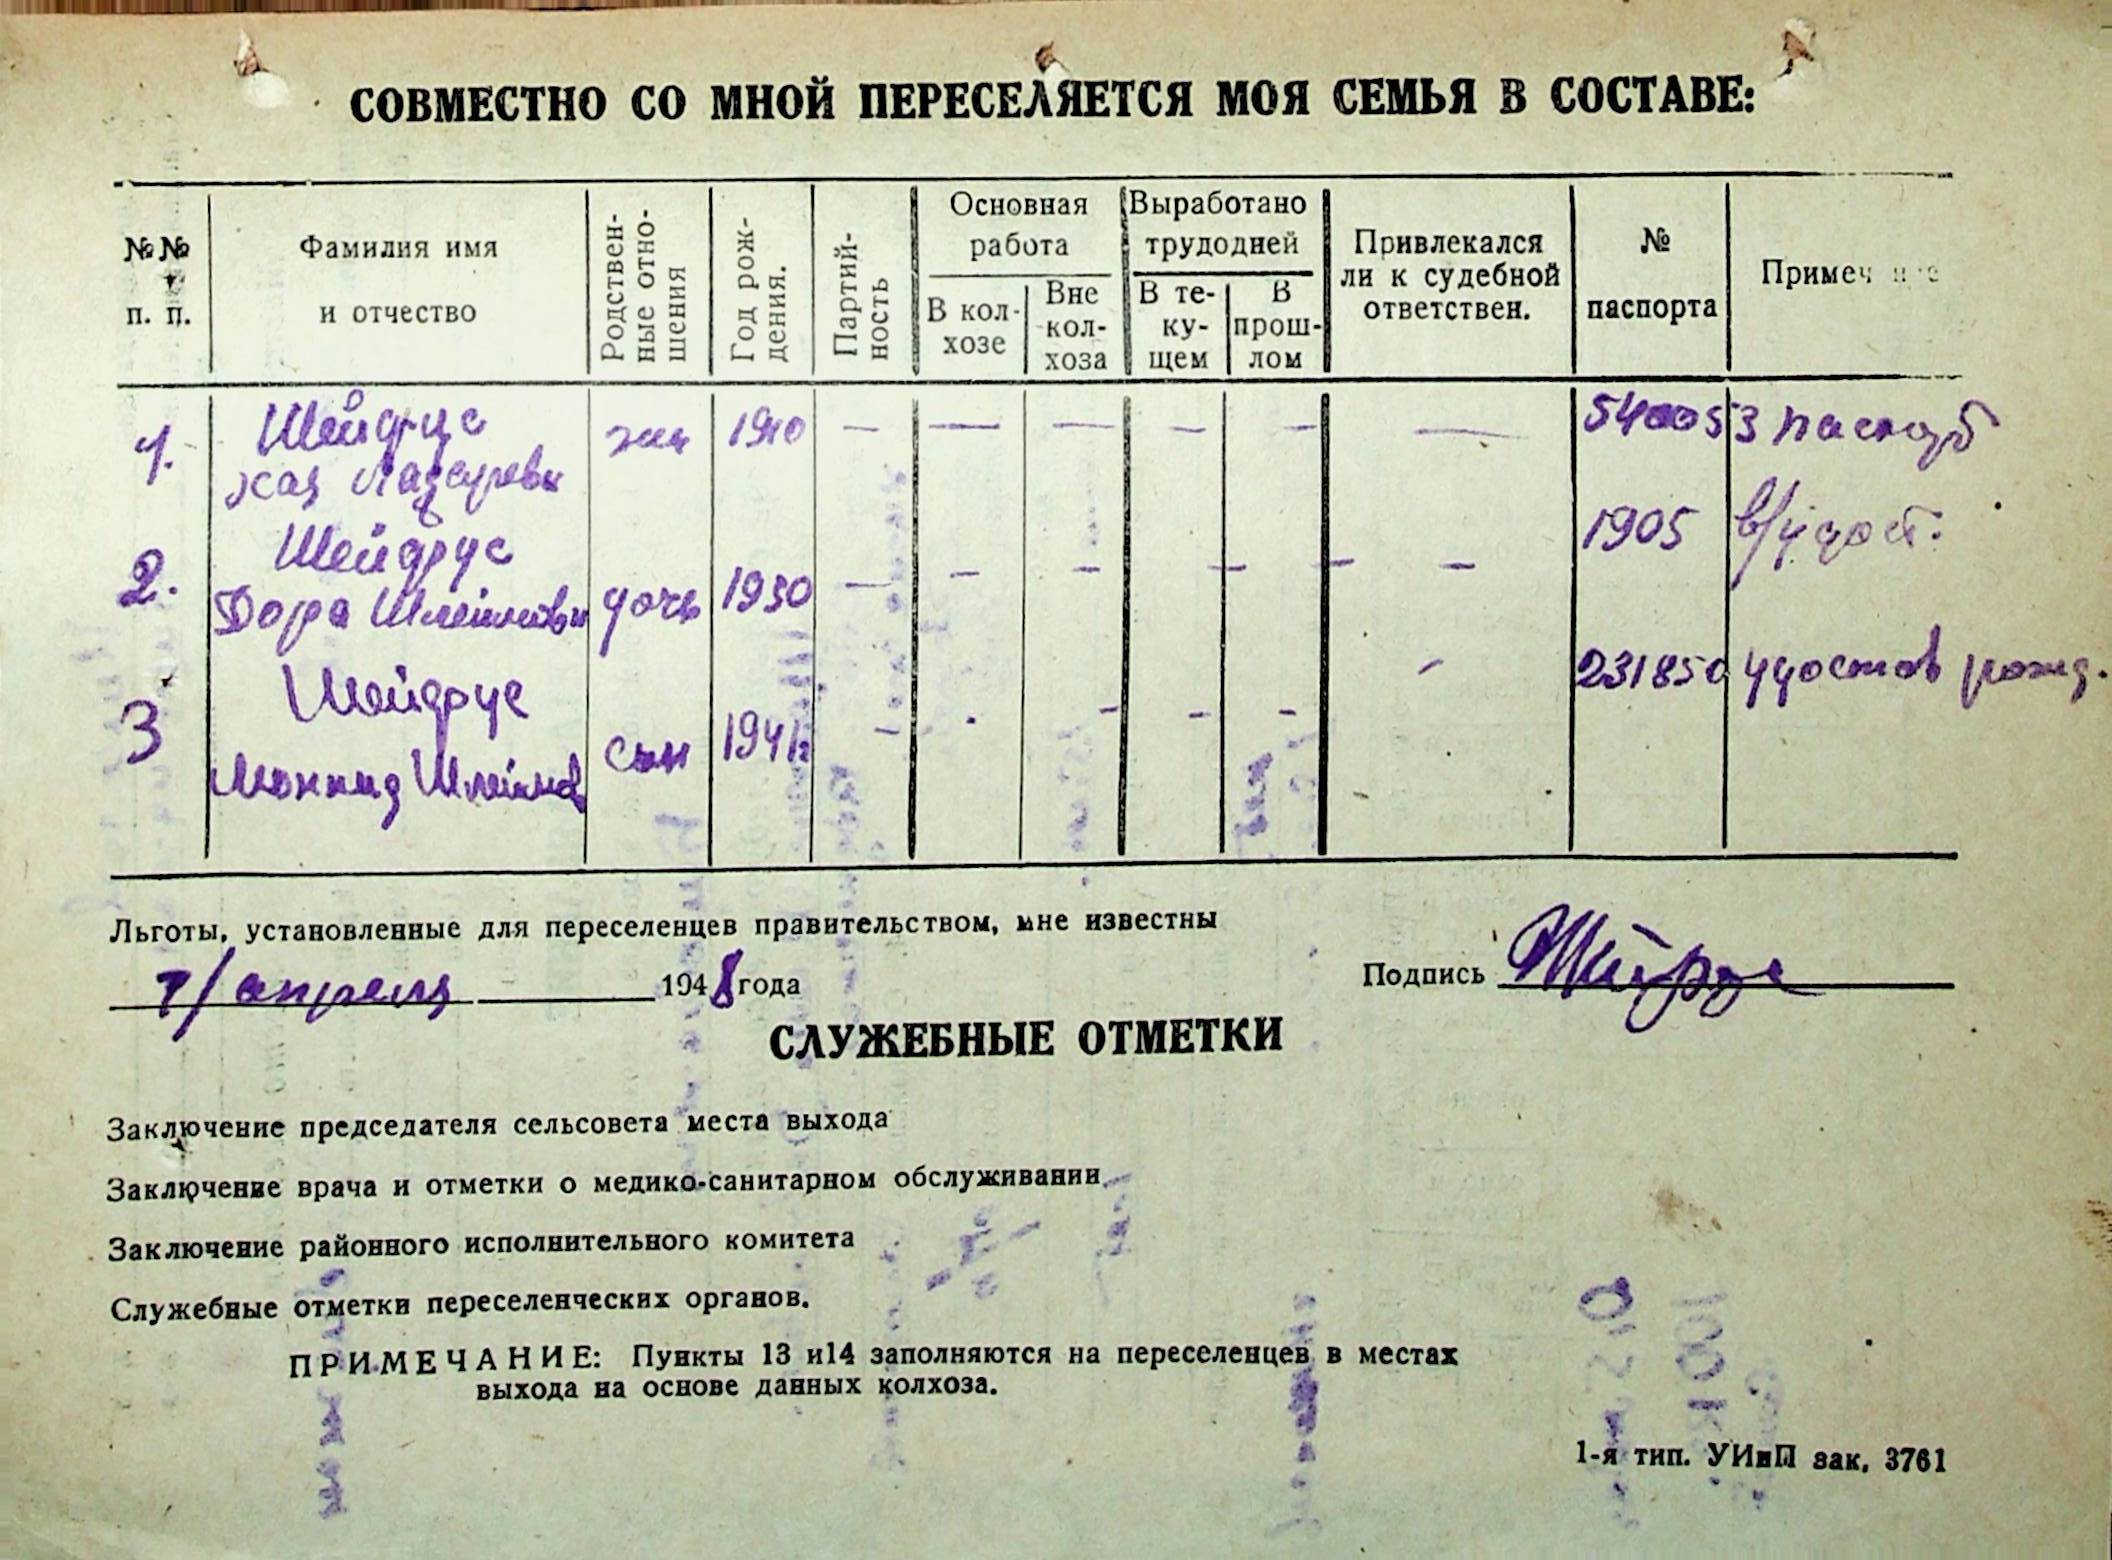 СОВМЕСТНО СО МНОЙ ПЕРЕСЕЛЯЕТСЯ МОЯ СЕМЬЯ В СОСТАВЕ:
№№ п. п.
Фамилия имя
и отчество
Родствен-
ные отно-
шения
Год рож-
дения.
Партий-
ность
Основная
работа
В кол-
хозе
Вне
кол-
хоза
Выработано
трудодней
В те-
ку-
щем
В
прош-
лом
Привлекался
ли к судебной
ответствен.
№
паспорта
Примеч
1. Шейдрус жена 1910 — — — — — — 540053 паспорт
Хая Лазаревн
2. Шейдрус 1905 в/удост.
Дора Шлеймовн дочь 1930 — — — — — —
3 Шейдрус 231850 удостов рожд.
Шлеймов сын 1941г - - - -
Льготы, установленные для переселенцев правительством, мне известны
7/апреля 1948 года
Подпись Шейдрус
СЛУЖЕБНЫЕ ОТМЕТКИ
Заключение председателя сельсовета места выхода
Заключение врача и отметки о медико-санитарном обслуживании
Заключение районного исполнительного комитета
Служебные отметки переселенческих органов.
ПРИМЕЧАНИЕ: Пункты 13 и14 заполняются на переселенцев в местах
выхода на основе данных колхоза.
1-я тип. УИиП зак. 3761